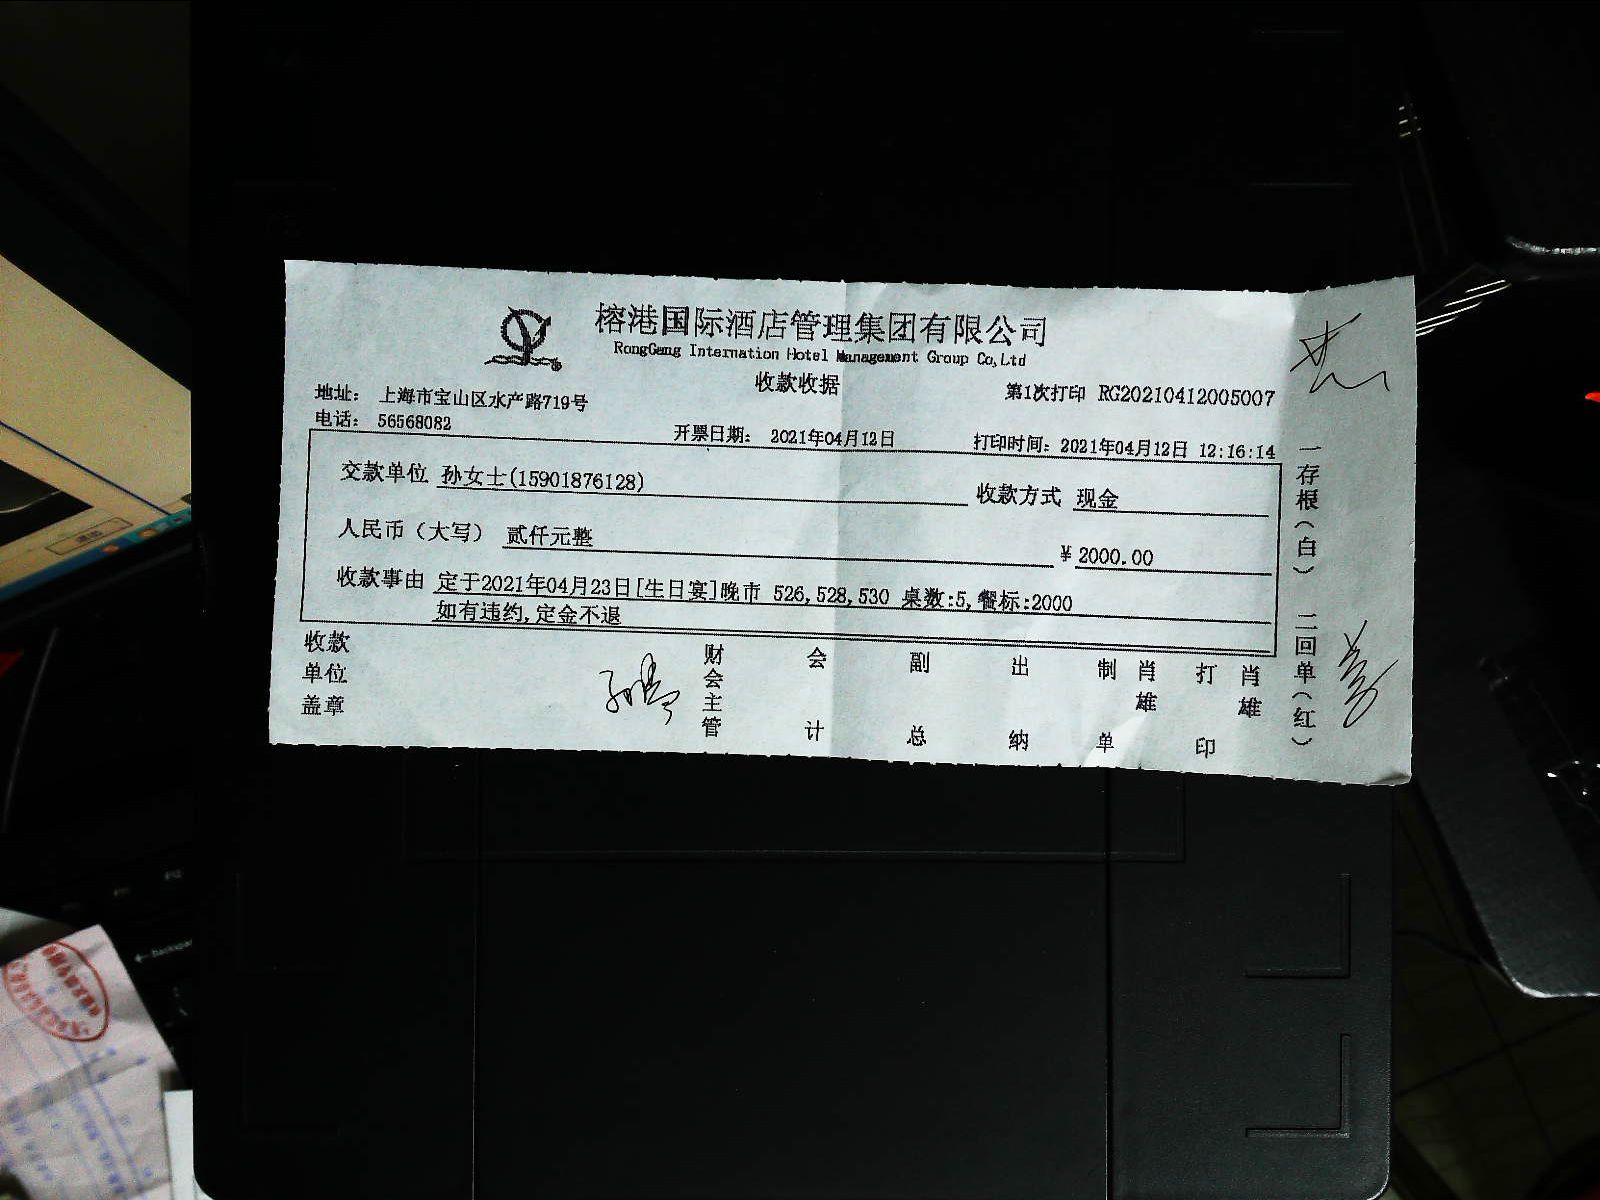 榕港国际酒店管理集团有限公司
RongGang Internation Hotel Management Group Co,Ltd
收款收据
地址： 上海市宝山区水产路719号
第1次打印 RG20210412005007
电话： 56568082
开票日期： 2021年04月12日
打印时间：2021年04月12日 12:16:14
交款单位 孙女士(15901876128)
收款方式 现金
人民币（大写） 贰仟元整
¥ 2000.00
收款事由 定于2021年04月23日[生日宴]晚市 526,528,530 桌数:5,餐标:2000
如有违约,定金不退
收款单位盖章
财会主管
会计
副总
出纳
制单
肖雄
打印
肖雄
一存根（白） 二回单（红）
backspace